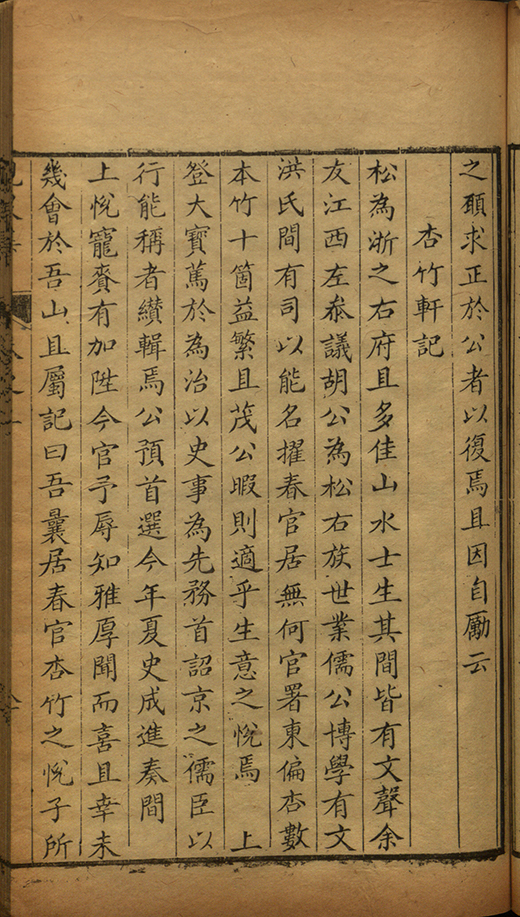 之頋求正於公者以復焉且因自勵云
杏竹軒記
松為浙之右府且多佳山水士生其間皆有文聲余
友江西左叅議胡公為松右族世業儒公博學有文
洪氏間有司以能名擢春官居無何官署東偏杏數
本竹十箇益繁且茂公暇則適乎生意之悅焉　上
登大寶萬於為治以史事為先務首詔京之儒臣以
行能稱者纉輯焉公預首選今年夏史成進奏間
上悅寵賚有加陞今官予辱知雅厚聞而喜且幸未
幾會於吾山且屬記曰吾曩居春官杏竹之悅子所